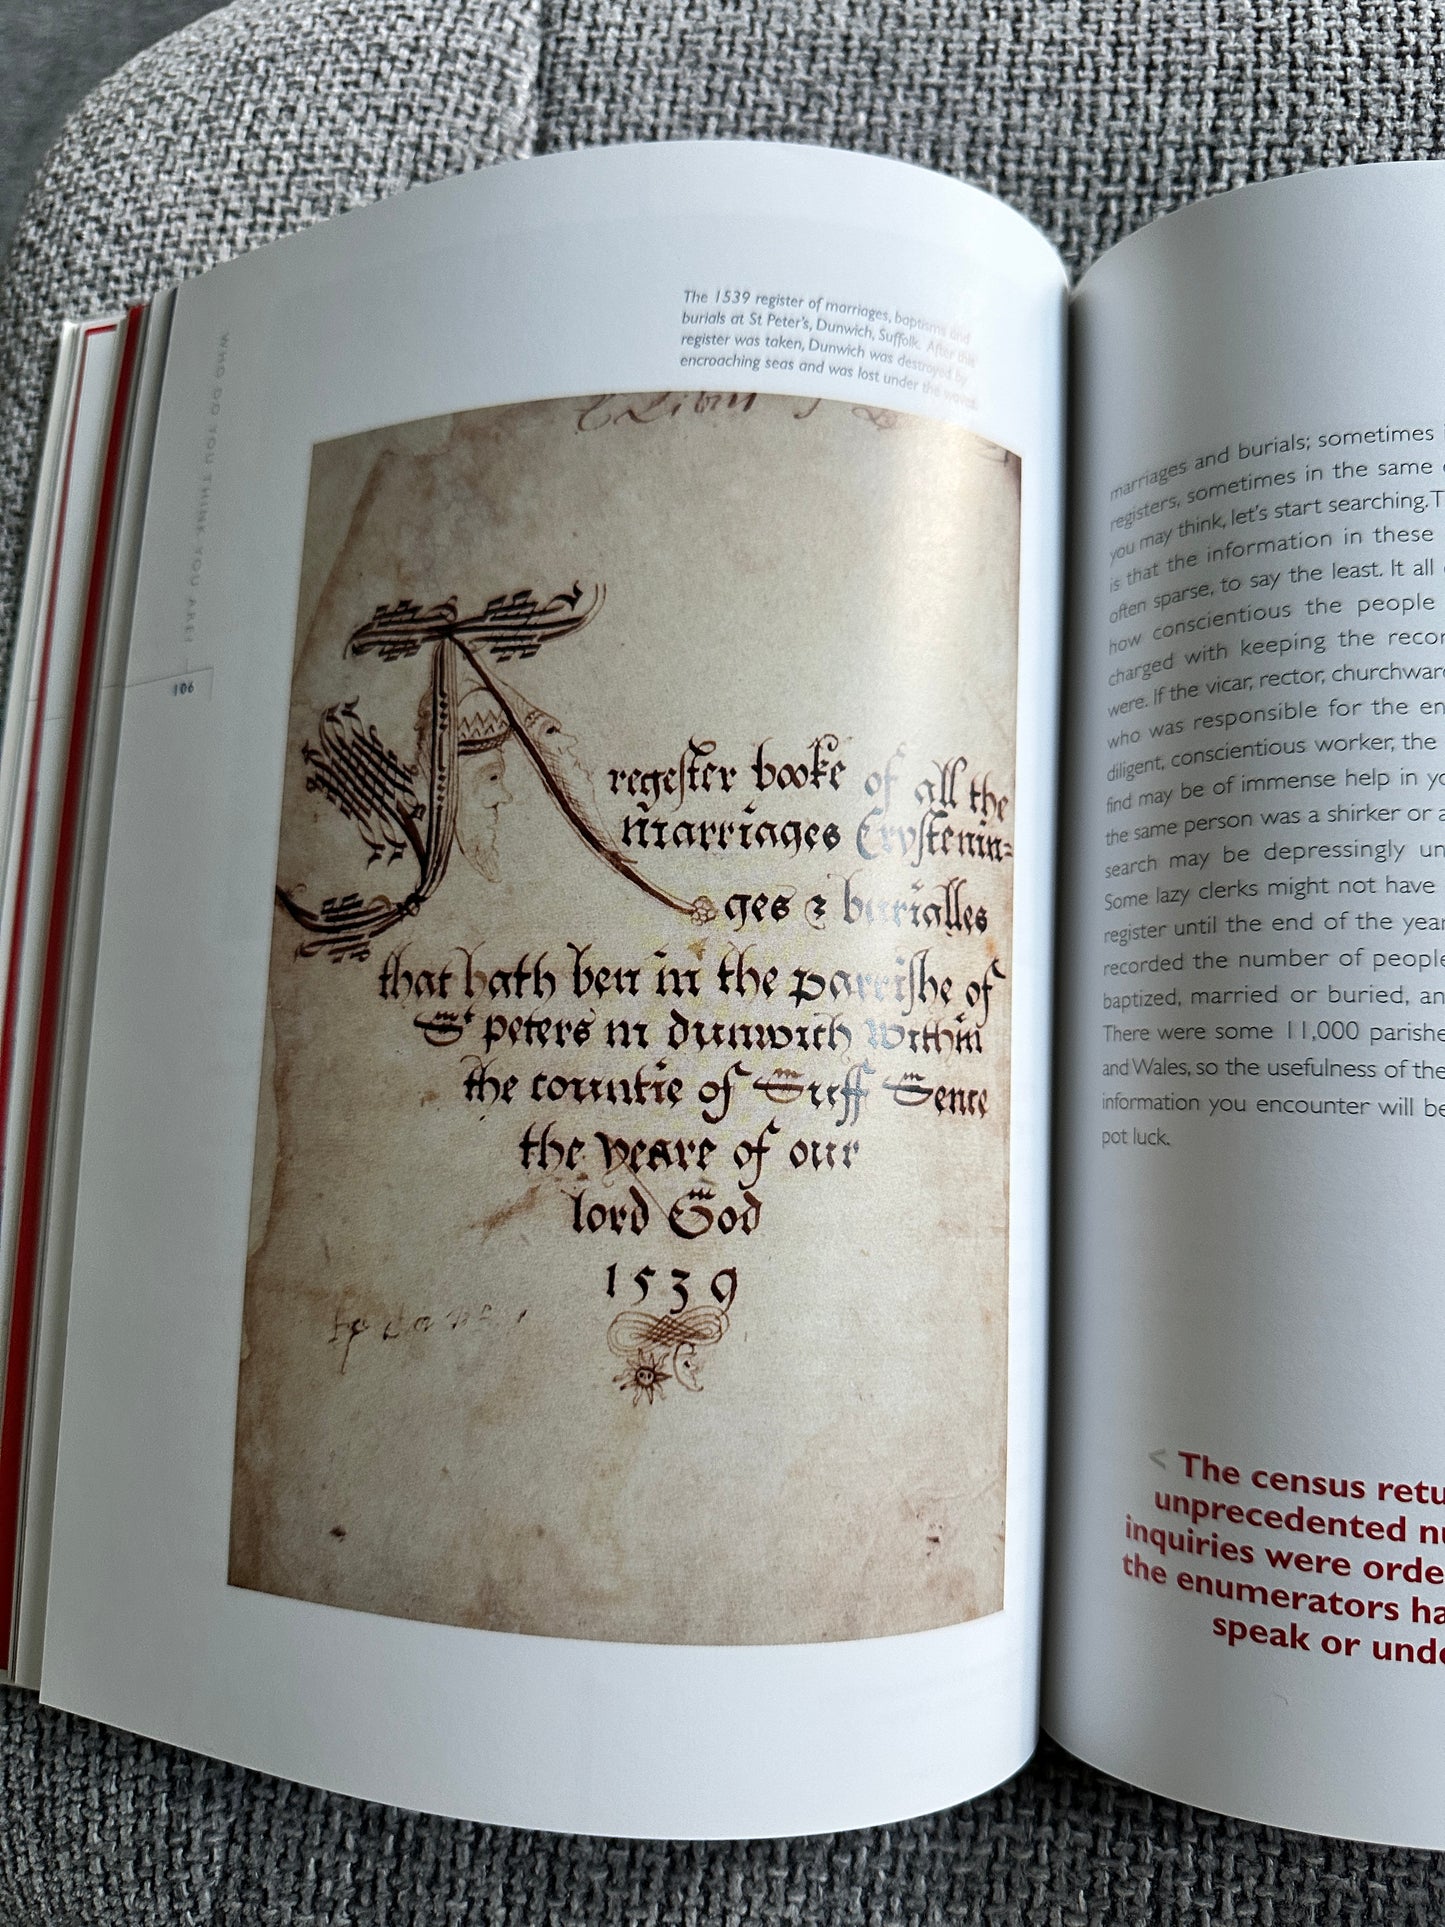 WHO DO YOU THINK YOU ARE?
106
The 1539 register of marriages, baptisms and
burials at St Peter's, Dunwich, Suffolk. After this
register was taken, Dunwich was destroyed by
encroaching seas and was lost under the waves.
A regester booke of all the
marriages Crystenin=
ges & burialles
that hath ben in the parrishe of
St peters in dunwich within
the countie of Suff Sence
the yeare of our
lord God
1539
marriages and burials; sometimes
registers, sometimes in the same
you may think, let's start searching. T
is that the information in these
often sparse, to say the least. It all
how conscientious the people
charged with keeping the recor
were. If the vicar, rector, churchward
who was responsible for the en
diligent, conscientious worker, the
find may be of immense help in yo
the same person was a shirker or a
search may be depressingly un
Some lazy clerks might not have
register until the end of the year
recorded the number of people
baptized, married or buried, an
There were some 11,000 parishe
and Wales, so the usefulness of the
information you encounter will be
pot luck.
< The census retu
unprecedented nu
inquiries were orde
the enumerators ha
speak or unde